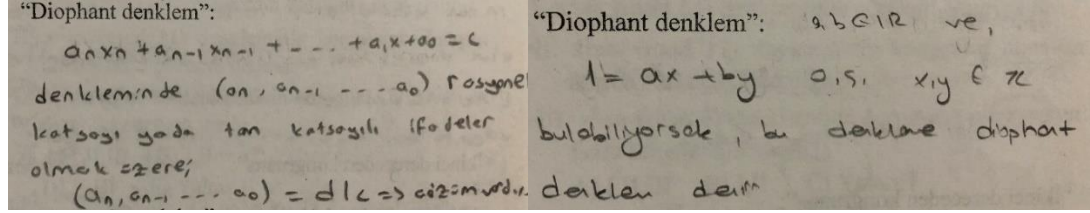 “Diophant denklem”:
anxn + an-1 xn-1 + - - - . + a1x + a0 = c
denkleminde (an, an-1 - - - - a0) rasyonel
katsayı yada tam katsayılı ifadeler
olmak üzere;
(an, an-1 - - - a0) = d | c => çözüm vardır.
“Diophant denklem”: a,b ∈ IR ve,
1 = ax + by ö.ş. x,y ∈ Z
bulabiliyorsak, bu denkleme diophant
denklem denir